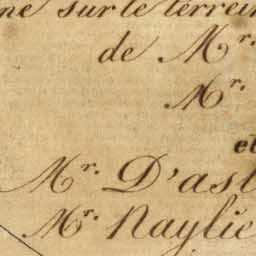 ne sur le terrein
de Mr.
Mr.
et
Mr. D'asl
Mr. Naylie